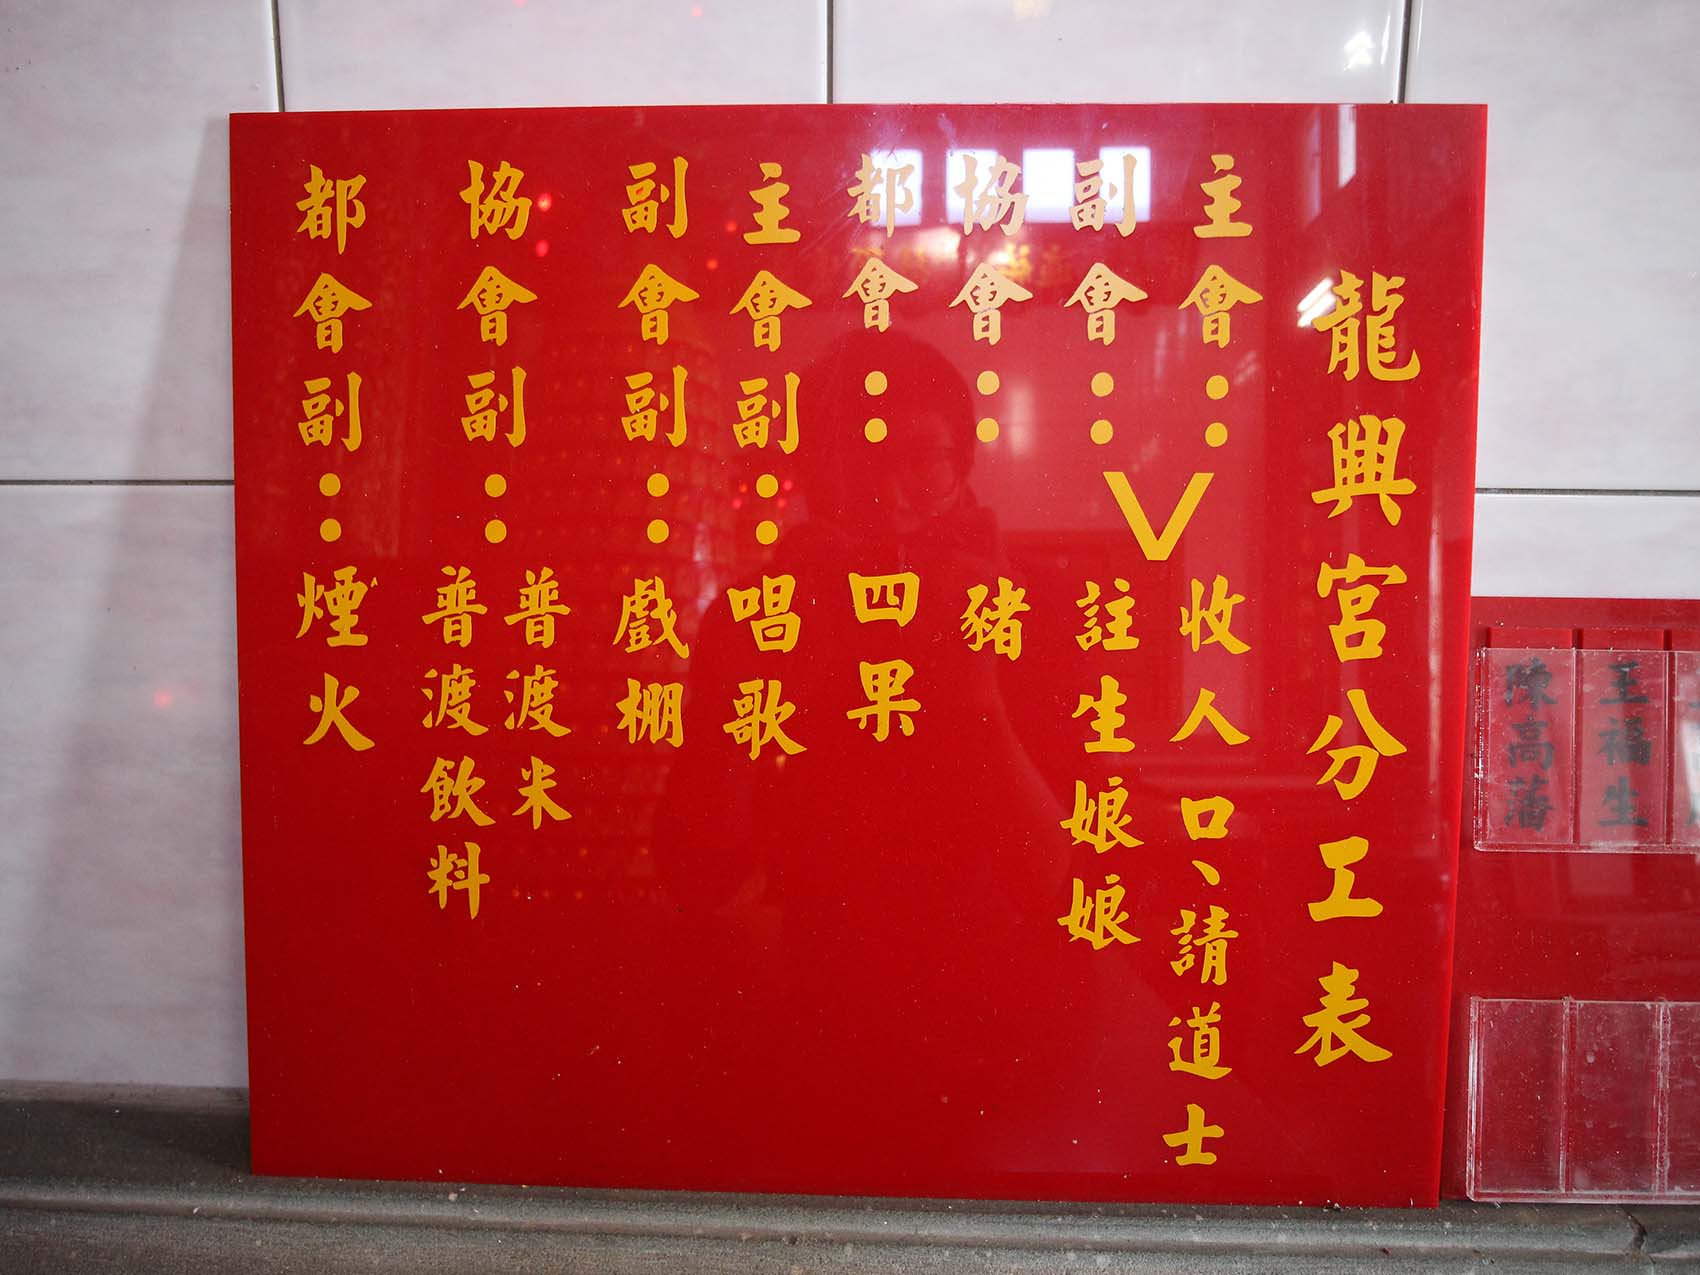 龍興宮分工表
主會：收人口、請道士
副會：註生娘娘
V
協會：豬
都會：四果
主會副：唱歌
副會副：戲棚
協會副：普渡米
普渡飲料
都會副：煙火
陳高藩
至福生